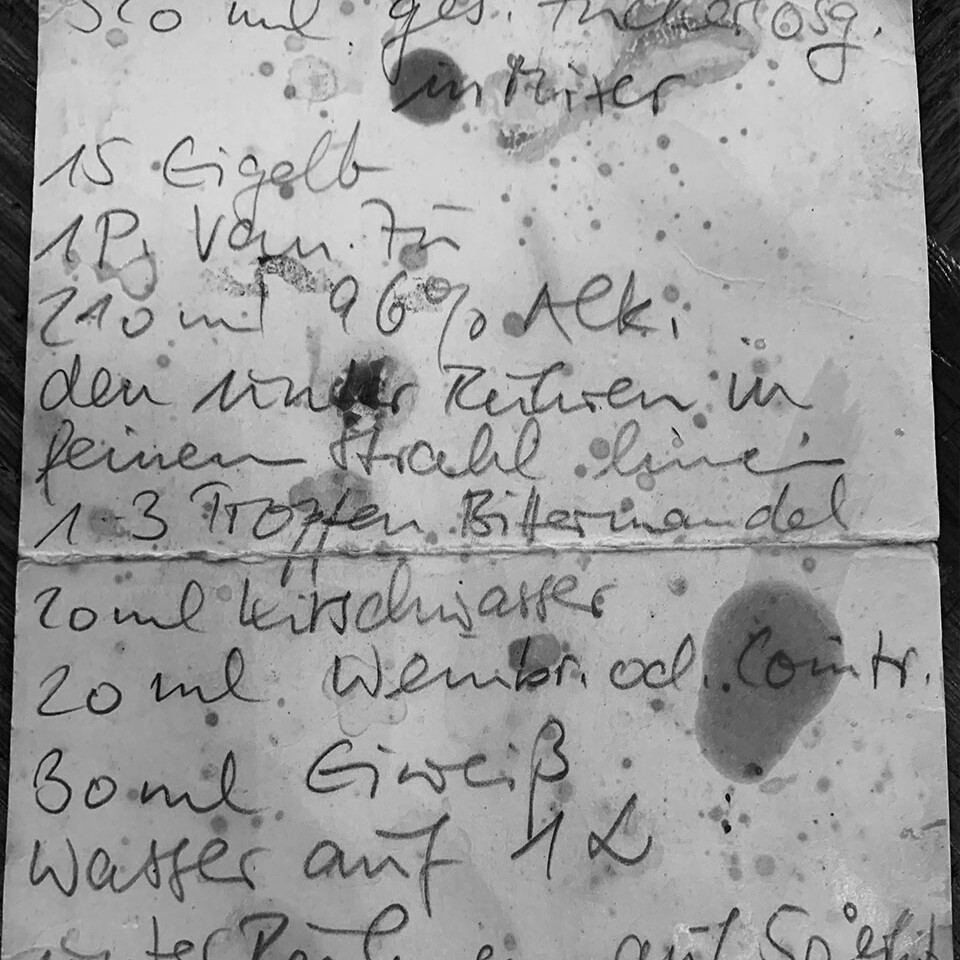 ml ges. Zuckerlösg.
in Mixer
15 Eigelb
1P. Van. Zu
210 ml 96% Alk.
den unter Rühren in
feinen Strahl hinein
1-3 Tropfen Bittermandel
20ml Kirschwasser
20 ml Weinbr. od. Cointr.
30ml Eiweiß
Wasser auf 1L
auf